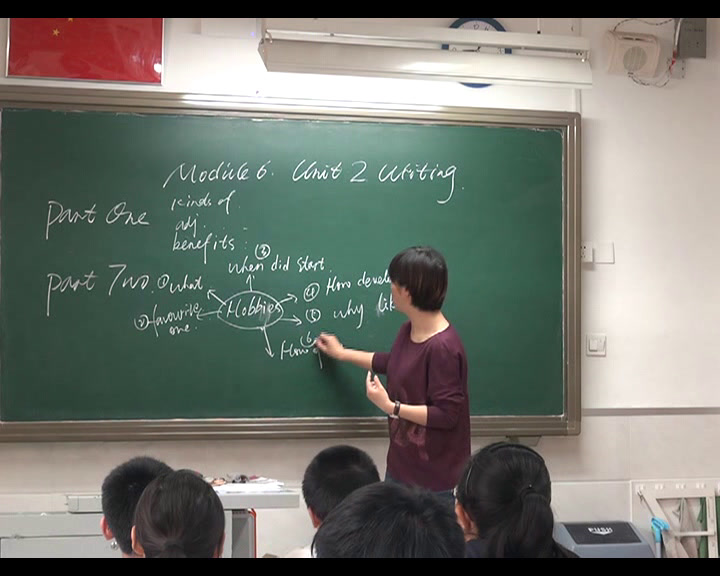 Module 6. Unit 2 Writing
Part One
kinds of
adj.
benefits :
Part Two.
① what
② favourite one.
Hobbies
③
when did start.
④ How
⑤ why
⑥
How
PUSH